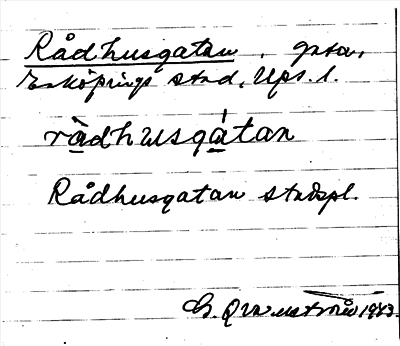 Rådhusgatan, gata,
Enköpings stad, Ups. l.
rå̀dhusgá̱tan
Rådhusgatan stadspl.
G. 1943